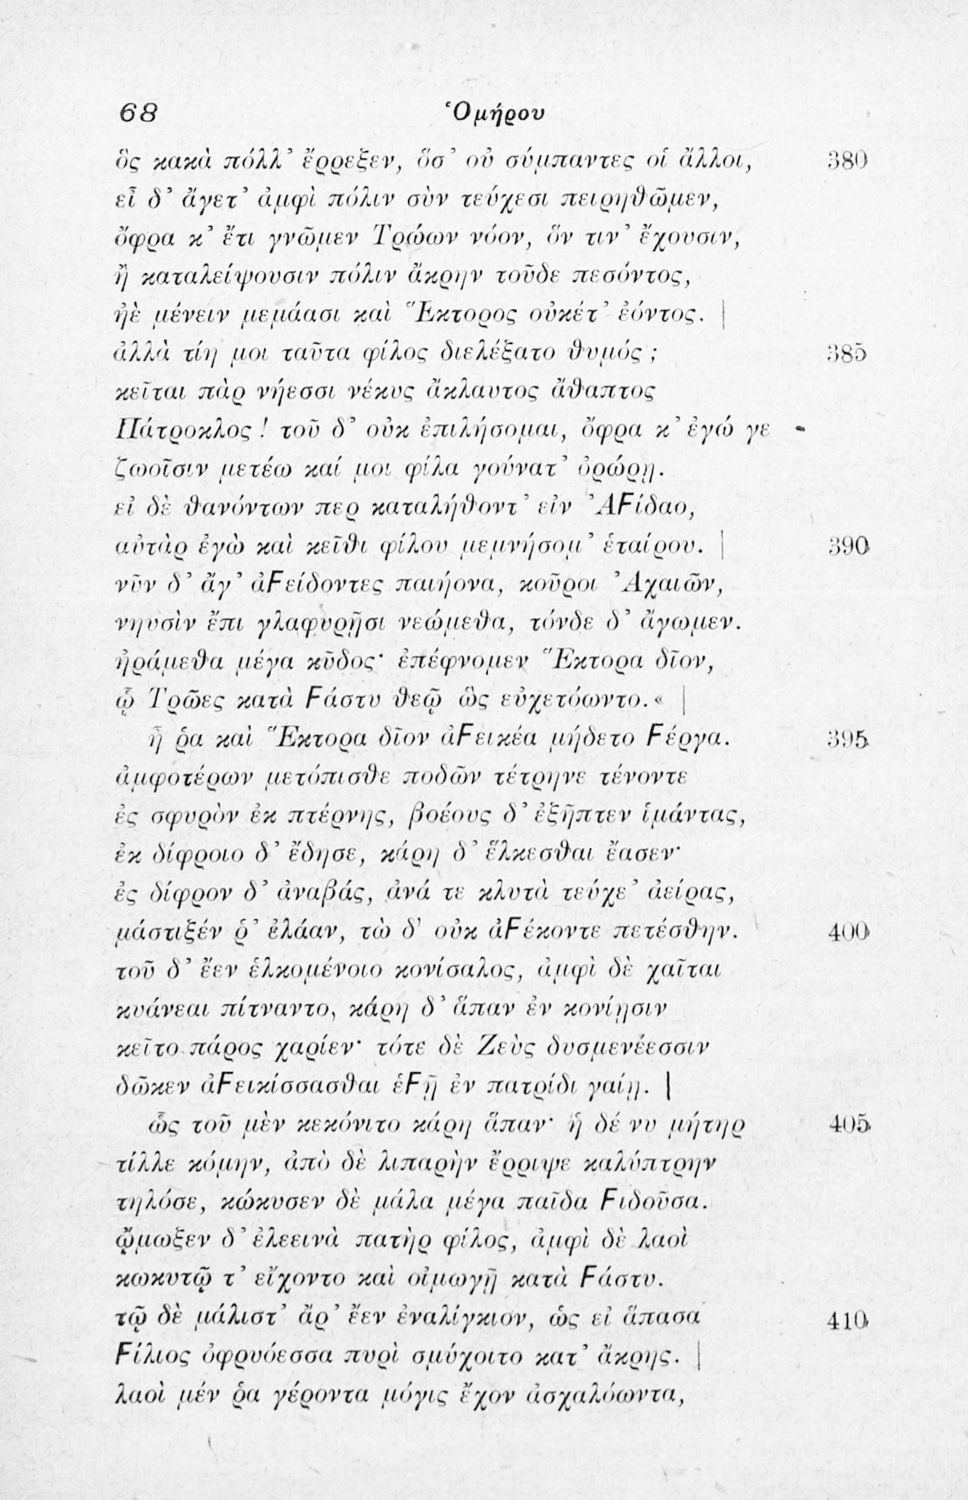 68 Ὁμήρου
ὃς κακὰ πόλλ’ ἔρρεξεν, ὅσ’ οὐ σύμπαντες οἱ ἄλλοι, 380
εἶ δ’ ἄγετ’ ἀμφὶ πόλιν σὺν τεύχεσι πειρηθῶμεν,
ὄφρα κ’ ἔτι γνῶμεν Τρώων νόον, ὅν τιν’ ἔχουσιν,
ἢ καταλείψουσιν πόλιν ἄκρην τοῦδε πεσόντος,
ἠὲ μένειν μεμάασι καὶ Ἕκτορος οὐκέτ’ ἐόντος. |
ἀλλὰ τίη μοι ταῦτα φίλος διελέξατο θυμός ; 385
κεῖται πὰρ νήεσσι νέκυς ἄκλαυτος ἄθαπτος
Πάτροκλος ! τοῦ δ’ οὐκ ἐπιλήσομαι, ὄφρα κ’ ἐγώ γε
ζωοῖσιν μετέω καί μοι φίλα γούνατ’ ὀρώρῃ.
εἰ δὲ θανόντων περ καταλήθοντ’ εἰν ’ΑϜίδαο,
αὐτὰρ ἐγὼ καὶ κεῖθι φίλου μεμνήσομ’ ἑταίρου. | 390
νῦν δ’ ἄγ’ ἀϜείδοντες παιήονα, κοῦροι Ἀχαιῶν,
νηυσὶν ἔπι γλαφυρῇσι νεώμεθα, τόνδε δ’ ἄγωμεν.
ἠράμεθα μέγα κῦδος· ἐπέφνομεν Ἕκτορα δῖον,
ᾧ Τρῶες κατὰ Ϝάστυ θεῷ ὣς εὐχετόωντο.« |
ἦ ῥα καὶ Ἕκτορα δῖον ἀϜεικέα μήδετο Ϝέργα. 395
ἀμφοτέρων μετόπισθε ποδῶν τέτρηνε τένοντε
ἐς σφυρὸν ἐκ πτέρνης, βοέους δ’ ἐξῆπτεν ἱμάντας,
ἐκ δίφροιο δ’ ἔδησε, κάρη δ’ ἕλκεσθαι ἔασεν·
ἐς δίφρον δ’ ἀναβάς, ἀνά τε κλυτὰ τεύχε’ ἀείρας,
μάστιξέν ῥ’ ἐλάαν, τὼ δ’ οὐκ ἀϜέκοντε πετέσθην. 400
τοῦ δ’ ἔεν ἑλκομένοιο κονίσαλος, ἀμφὶ δὲ χαῖται
κυάνεαι πίτναντο, κάρη δ’ ἅπαν ἐν κονίῃσιν
κεῖτο πάρος χαρίεν· τότε δὲ Ζεὺς δυσμενέεσσιν
δῶκεν ἀϜεικίσσασθαι ἑϜῇ ἐν πατρίδι γαίῃ. |
ὣς τοῦ μὲν κεκόνιτο κάρη ἅπαν· ἡ δέ νυ μήτηρ 405
τίλλε κόμην, ἀπὸ δὲ λιπαρὴν ἔρριψε καλύπτρην
τηλόσε, κώκυσεν δὲ μάλα μέγα παῖδα Ϝιδοῦσα.
ᾤμωξεν δ’ ἐλεεινὰ πατὴρ φίλος, ἀμφὶ δὲ λαοὶ
κωκυτῷ τ’ εἴχοντο καὶ οἰμωγῇ κατὰ Ϝάστυ.
τῷ δὲ μάλιστ’ ἄρ’ ἔεν ἐναλίγκιον, ὡς εἰ ἅπασα 410
Ϝίλιος ὀφρυόεσσα πυρὶ σμύχοιτο κατ’ ἄκρης. |
λαοὶ μέν ῥα γέροντα μόγις ἔχον ἀσχαλόωντα,